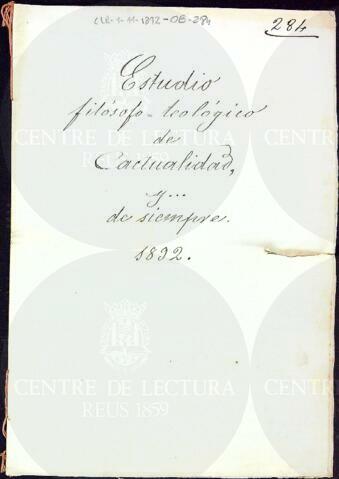 CLR-1-11-1892-OE-284
284
Estudio
filósofo-teológico
de
actualidad,
y...
de siempre.
1892.
CENTRE DE LECTURA
REUS 1859
CENTRE DE LECTURA
REUS 1859